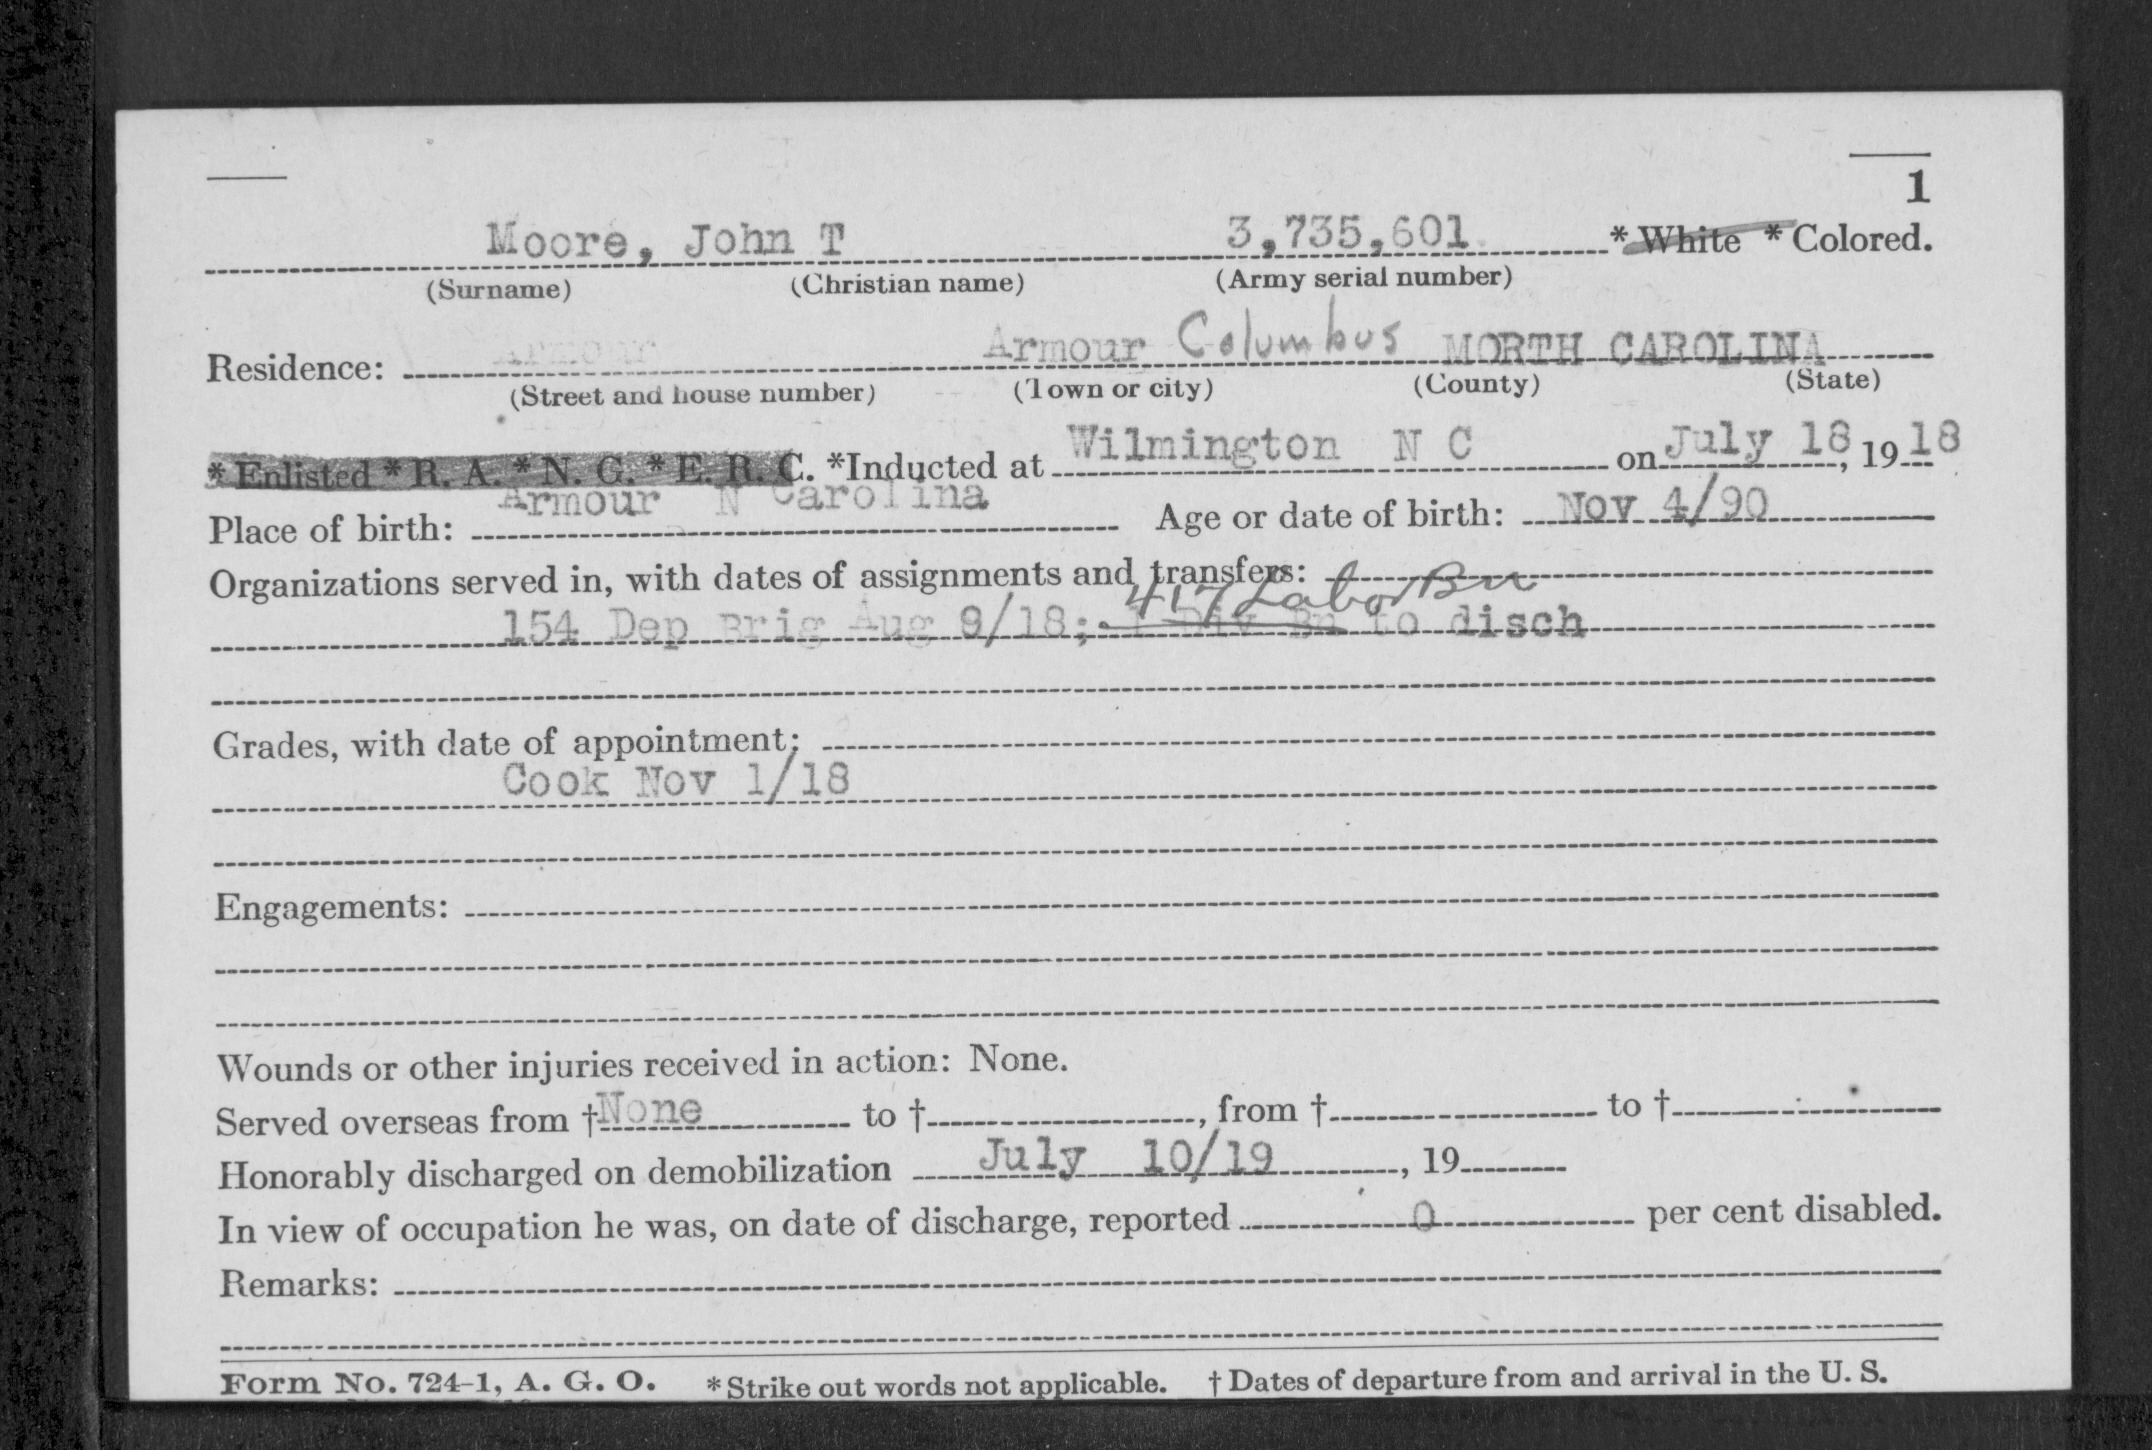 1
Moore, John T 3,735,601 * White * Colored.
(Surname) (Christian name) (Army serial number)
Residence: Armour Armour Columbus MORTH CAROLINA
(Street and house number) (Town or city) (County) (State)
* Enlisted * R. A. * N. G. * E. R. C. *Inducted at Wilmington N C on July 18, 1918
Place of birth: Armour N Carolina Age or date of birth: Nov 4/90
Organizations served in, with dates of assignments and transfers:
417 Labor Bn
154 Dep Brig Aug 9/18; Div Bn to disch
Grades, with date of appointment:
Cook Nov 1/18
Engagements:
Wounds or other injuries received in action: None.
Served overseas from †None to †, from † to †
Honorably discharged on demobilization July 10/19, 19
In view of occupation he was, on date of discharge, reported 0 per cent disabled.
Remarks:
Form No. 724-1, A. G. O. * Strike out words not applicable. † Dates of departure from and arrival in the U. S.